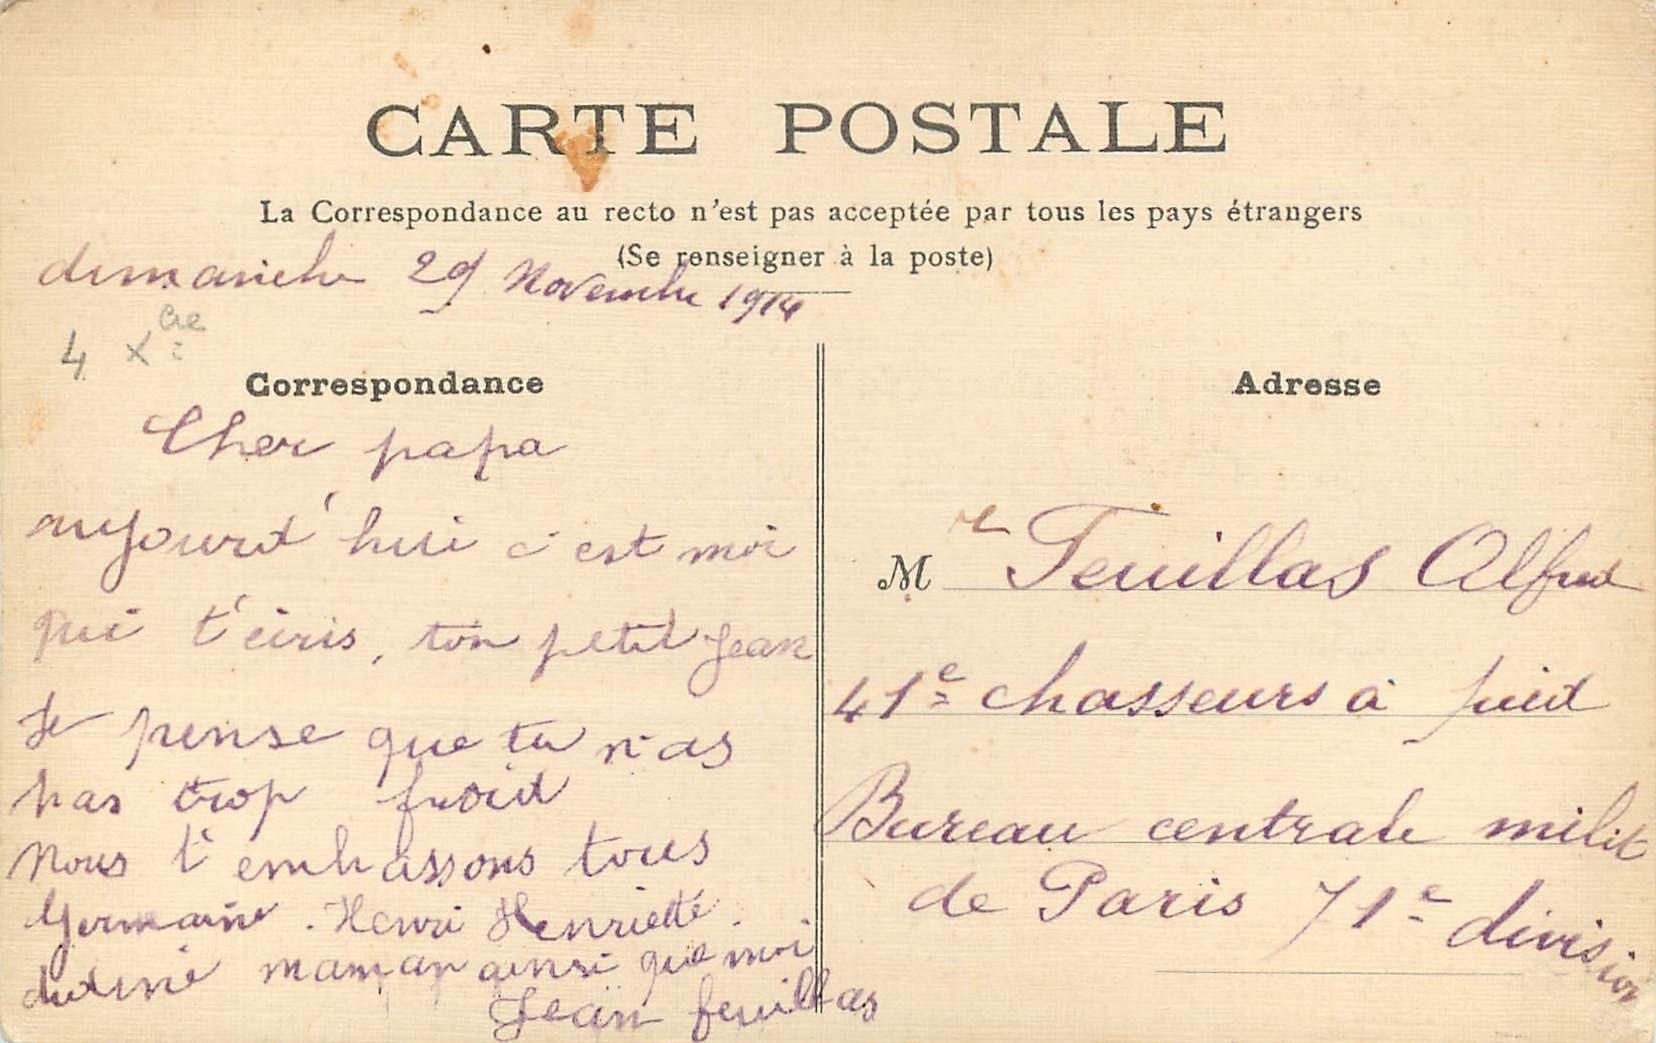 CARTE POSTALE
La Correspondance au recto n'est pas acceptée par tous les pays étrangers
(Se renseigner à la poste)
dimanche 29 Novembre 1914
4 X
Correspondance
Cher papa
aujourd'hui c'est moi
qui t'ecris, ton petit Jean
Je pense que tu n'as
pas trop froid
Nous t'embrassons tous
Germaine. Henri Henriette.
maman ainsi que moi
Jean feuillas
Adresse
M r Feuillas Alfred
41e chasseurs à pied
Bureau centrale milit
de Paris 71e division